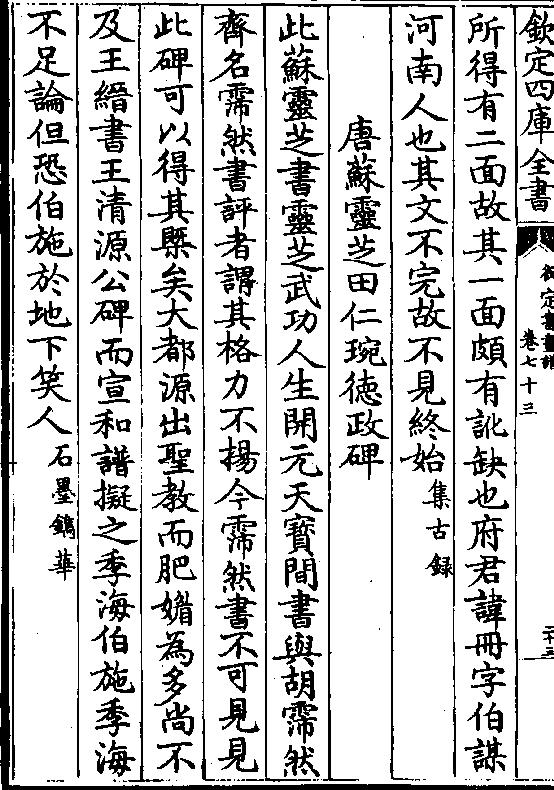 欽定四庫全書
卷七十三
所得有二面故其一面頗有訛缺也府君諱冊字伯謀
河南人也其文不完故不見終始集古録
唐蘇靈芝田仁琬徳政碑
此蘇靈芝書靈芝武功人生開元天寶間書與胡霈然
齊名霈然書評者謂其格力不揚今霈然書不可見見
此碑可以得其槩矣大都源出聖教而肥媚為多尚不
及王縉書王清源公碑而宣和譜擬之季海伯施季海
不足論但恐伯施於地下笑人石墨鐫華